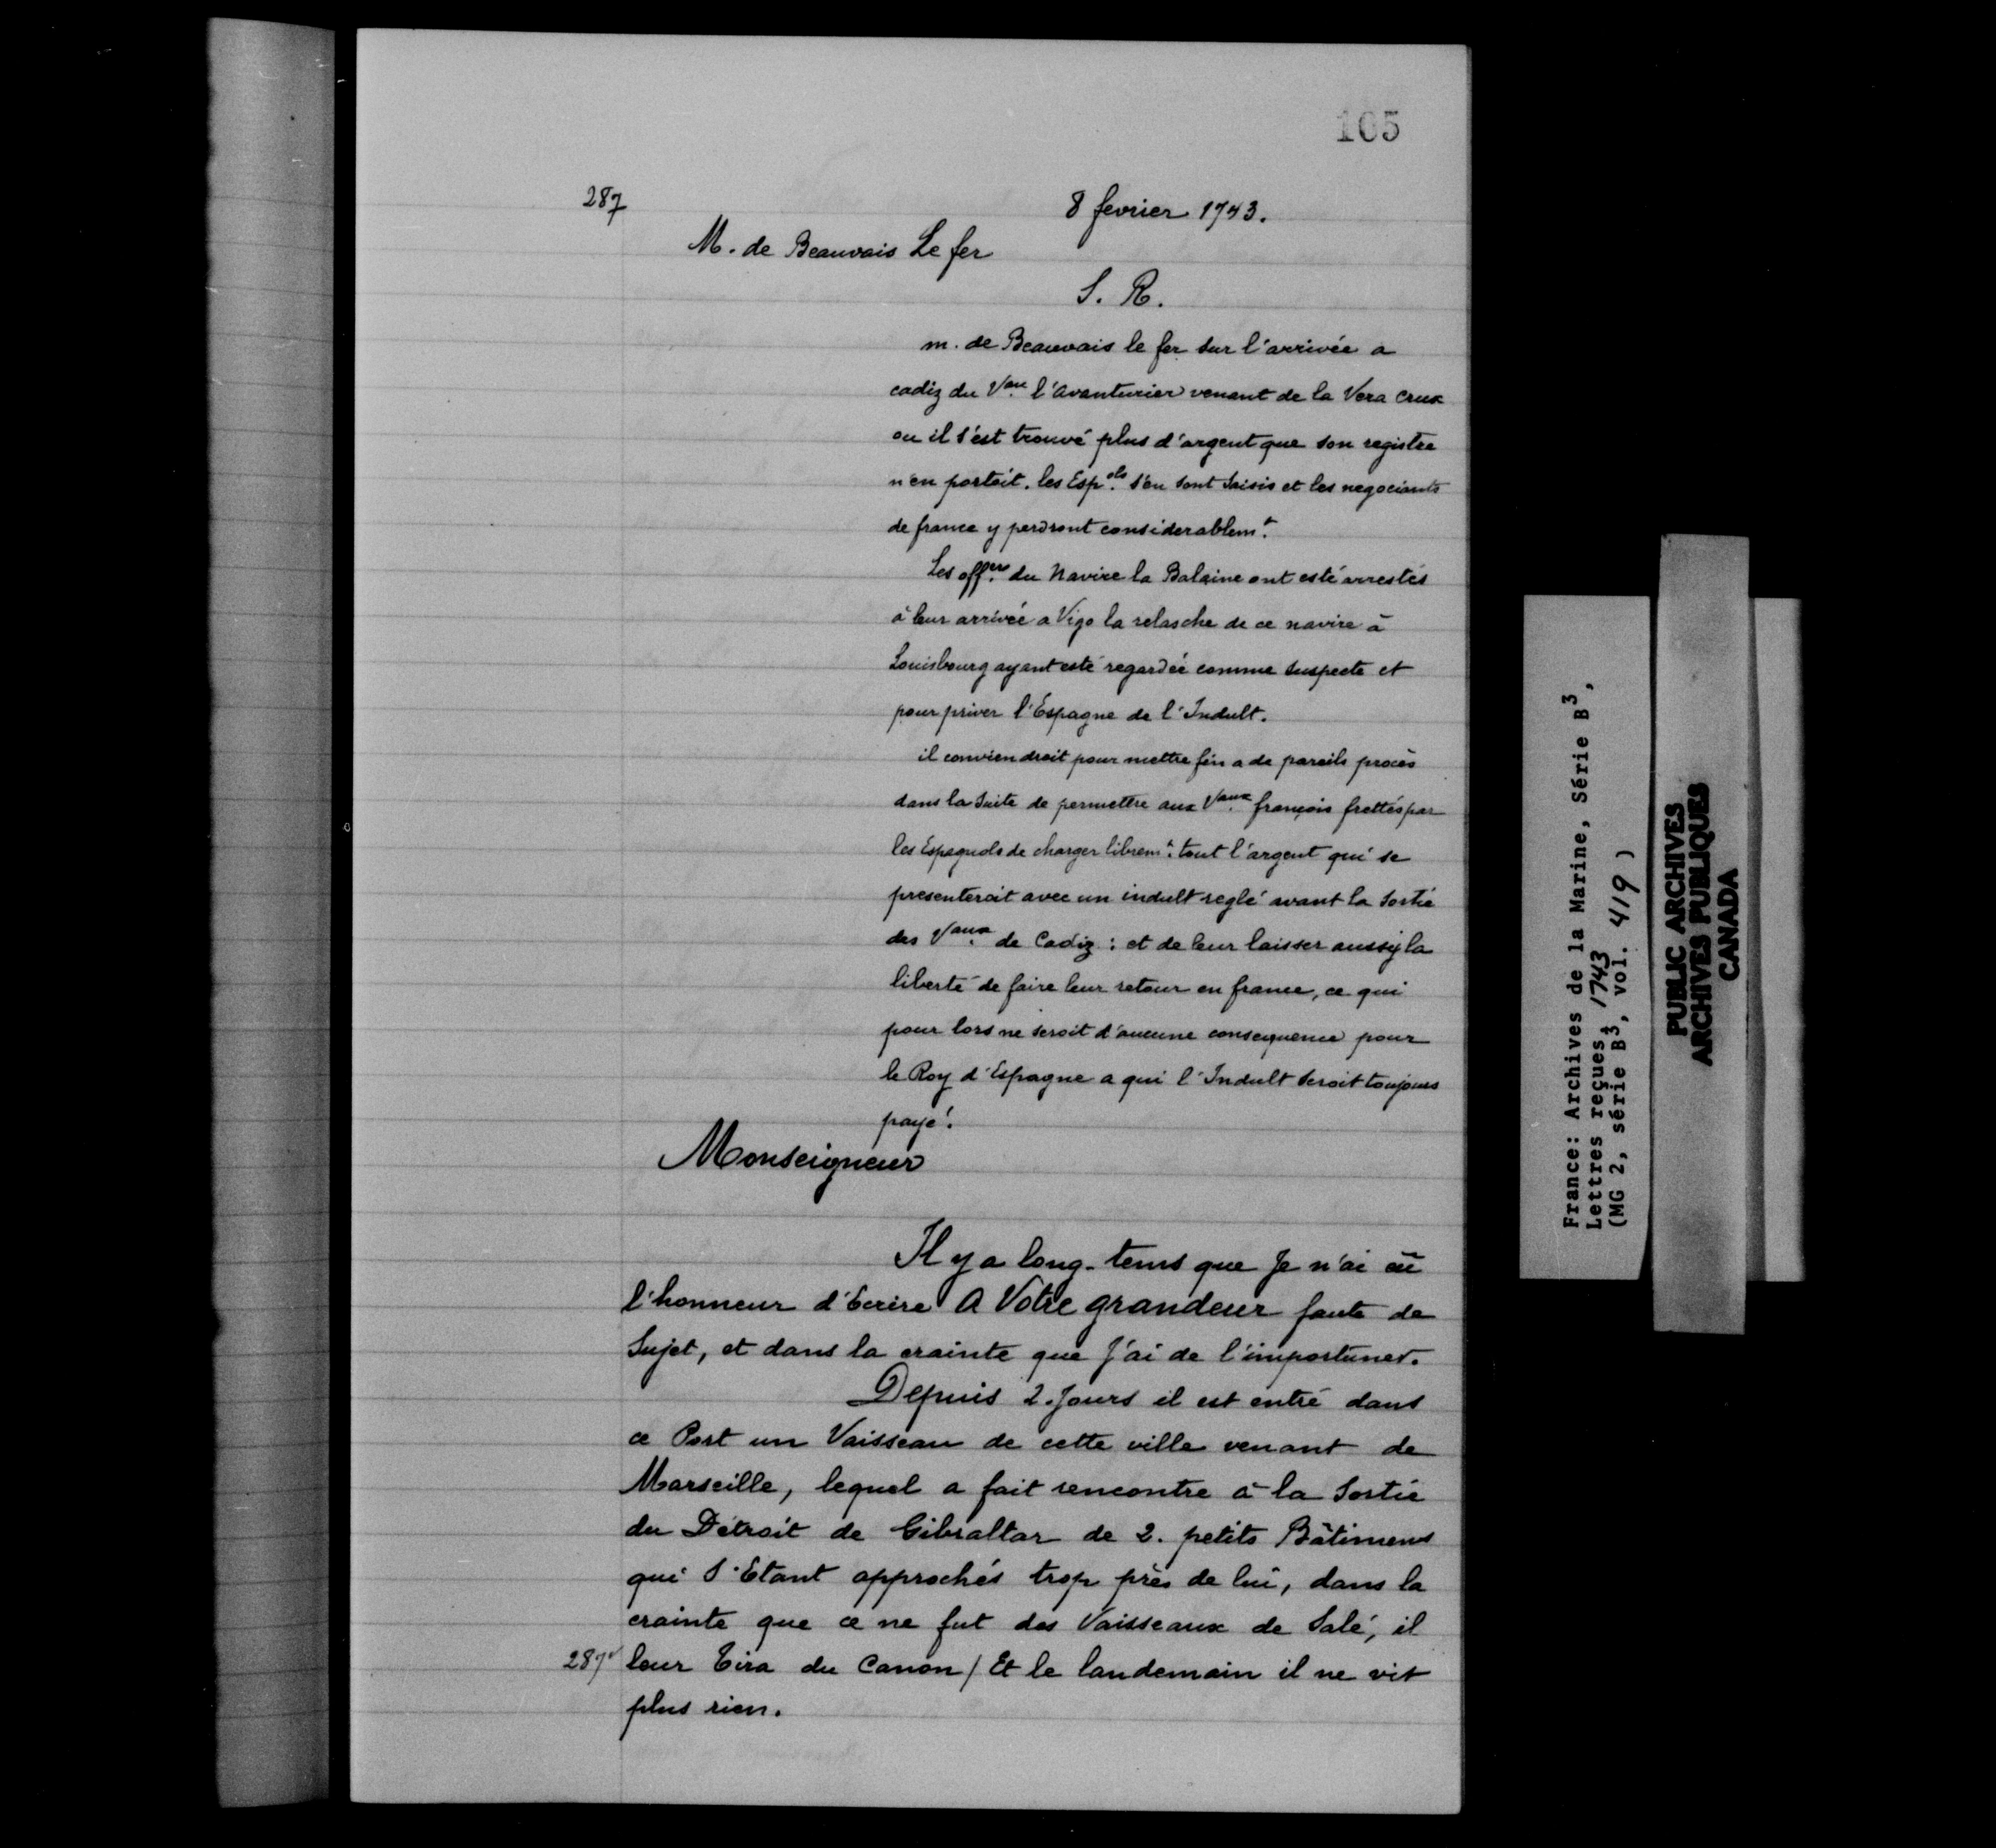 105
287
8 fevrier 1743.
M. de Beauvais Le fer
S. R.
m. de Beauvais le fer sur l'arrivée a
cadiz du Vau. l'avanturier venant de la Vera Crux
ou il s'est trouvé plus d'argent que son registre
n'en portoit. les Esp.ols s'en sont saisis et les negociants
de france y perdront considerablem.t
Les off.ers du Navire la Balaine ont esté arrestés
à leur arrivée a Vigo la relasche de ce navire à
Louisbourg ayant esté regardée comme suspecte et
pour priver l'Espagne de l'Indult.
il conviendroit pour mettre fin a de pareils procès
dans la suite de permettre aux Vaux. françois frettés par
les Espagnols de charger librem.t tout l'argent qui se
presenteroit avec un indult reglé avant la sortie
des Vaux. de Cadiz : et de leur laisser aussy la
liberté de faire leur retour en france, ce qui
pour lors ne seroit d'aucune consequence pour
le Roy d'Espagne a qui l'Indult seroit toujours
payé.
Monseigneur
Il y a long-tems que Je n'ai eü
l'honneur d'Ecrire A Votre grandeur faute de
Sujet, et dans la crainte que J'ai de l'importuner.
Depuis 2. Jours il est entré dans
ce Port un Vaisseau de cette ville venant de
Marseille, lequel a fait rencontre à la Sortie
du Détroit de Gibraltar de 2. petits Bâtimens
qui S'Etant approchés trop près de lui, dans la
crainte que ce ne fut des Vaisseaux de Salé, il
287v leur Tira du Canon / Et le landemain il ne vit
plus rien.
France: Archives de la Marine, Série B3,
Lettres reçues, 1743
(MG 2, série B3, vol. 419 )
PUBLIC ARCHIVES
ARCHIVES PUBLIQUES
CANADA